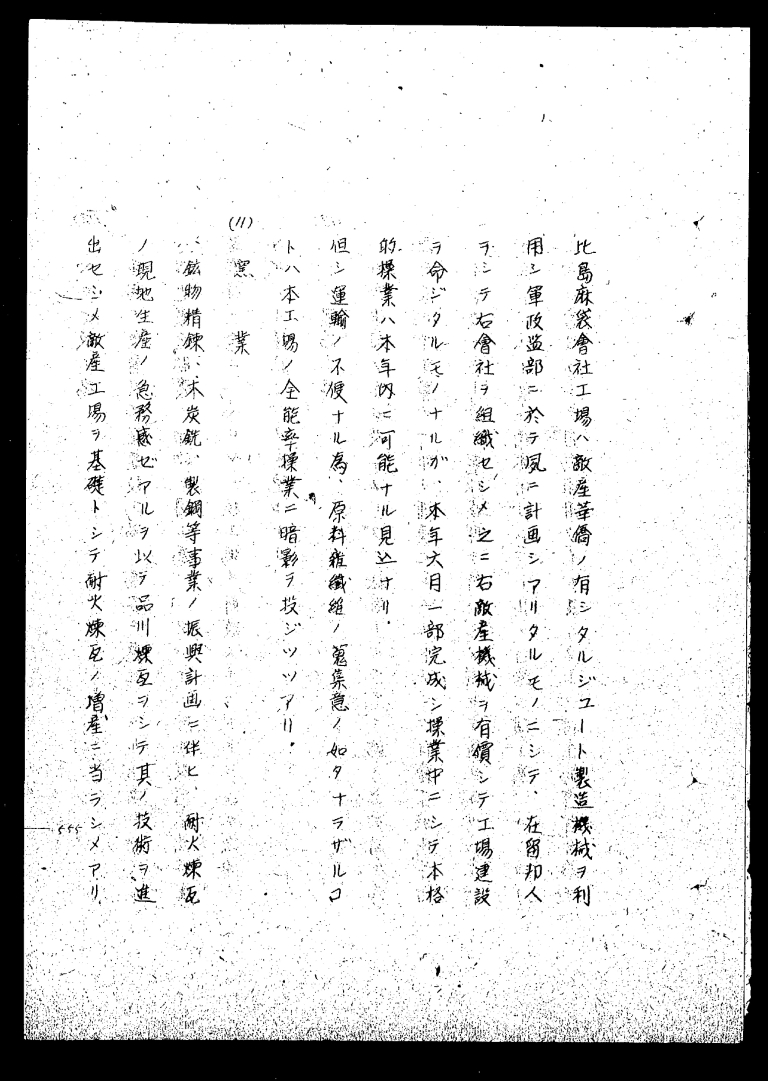 比島麻袋會社工場ハ敵産華僑ノ有シタルジユート製造機械ヲ利
用シ軍政監部ニ於テ夙ニ計画シアリタルモノニシテ、在留邦人
ヲシテ右會社ヲ組織セシメ之ニ右敵産機械ヲ有償シテ工場建設
ヲ命ジタルモノナルガ、本年六月一部完成シ操業中ニシテ本格
的操業ハ本年内ニ可能ナル見込ナリ.
但シ運輸ノ不便ナル為、原料雑纖維ノ蒐集意ノ如クナラザルコ
トハ本工場ノ全能率操業ニ暗影ヲ投ジツツアリ.
(11)
窯業
、鉱物精錬、木炭銑、製鋼等事業ノ振興計画ニ伴ヒ、耐火煉瓦
ノ現地生産ノ急務感ゼアルヲ以テ品川煉瓦ヲシテ其ノ技術ヲ進
出セシメ敵産工場ヲ基礎トシテ耐火煉瓦ノ増産ニ当ラシメアリ.
555